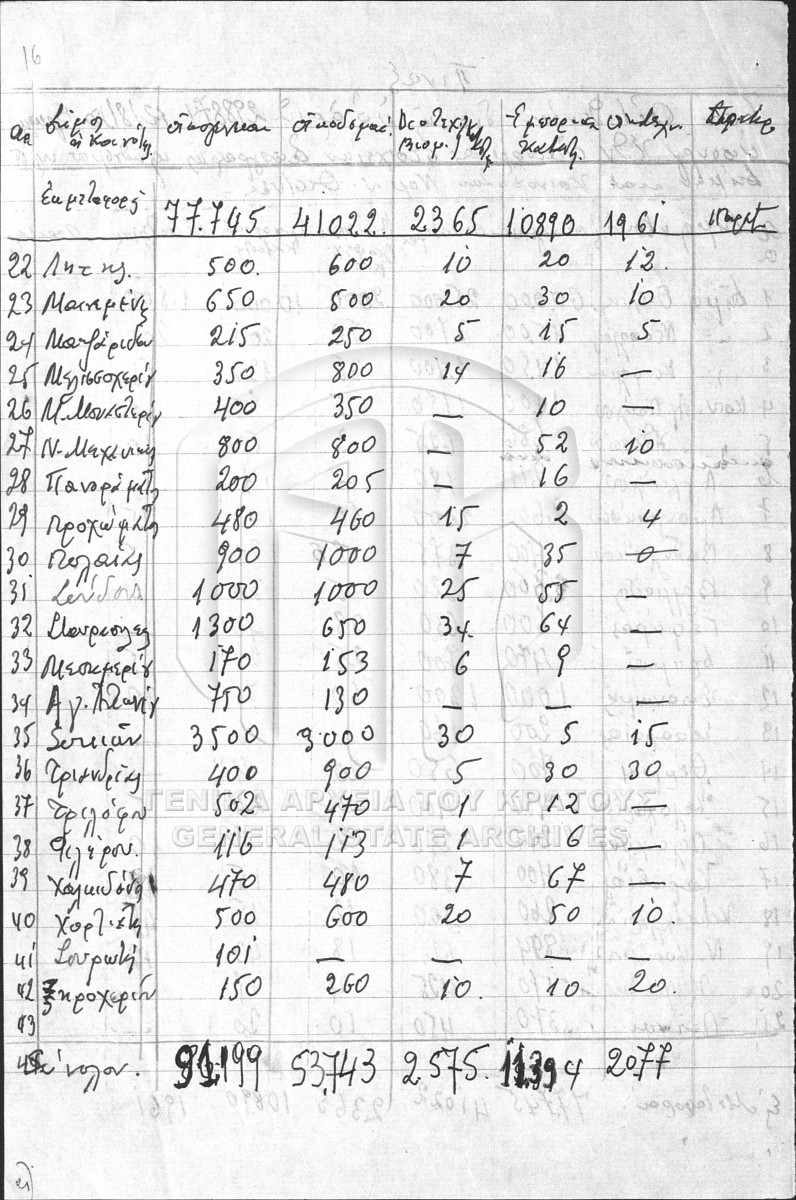 16
αα Δήμοι ή Κοινότ. οικογένειαι οικοδομαί Βιοτεχν. Βιομ. Εμπορικά Καταστ.
Εκ μεταφοράς 77.745 41022. 2365 10890 1961
22 Λητής. 500. 600 10 20 12.
23 Μενεμένης 650 800 20 30 10
24 Νεοχωρίδων 215 250 5 15 5
25 Μελισσοχωρίου 350 800 14 16 —
26 Ν. Μοναστηρίου 400 350 — 10 —
27 Ν. Μηχανιώνας 800 800 — 52 10
28 Πανοράματος 200 205 — 16 —
29 Προχώματος 480 460 15 2 4
30 Πυλαίας 900 1000 7 35 0
31 Σίνδου 1000 1000 25 55 —
32 Σταυρούπολης 1300 650 34. 64 —
33 Μεσημερίου 170 153 6 9 —
34 Αγ. 750 130 — — —
35 Συκεών 3500 3000 30 5 15
36 Τριανδρίας 400 900 5 30 30
37 Τριλόφου 502 470 1 12 —
38 Φιλύρου. 116 113 1 6 —
39 Χαλκιδόνος 470 480 7 67 —
40 Χορτιάτη 500 600 20 50 10.
41 Σουρωτή 101 — — — —
42 Ξηροχωρίου 150 260 10. 10 20.
43
44 Σύνολον. 91.199 53,743 2.575. 11394 2077
ΓΕΝΙΚΑ ΑΡΧΕΙΑ ΤΟΥ ΚΡΑΤΟΥΣ
GENERAL STATE ARCHIVES